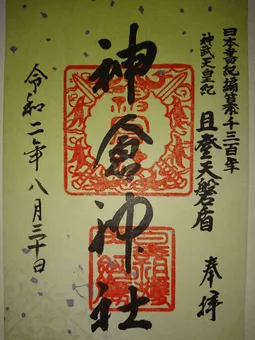 日本書紀編纂千三百年
神武天皇紀 且登天磐盾
奉拝
神倉神社
令和二年八月三十日